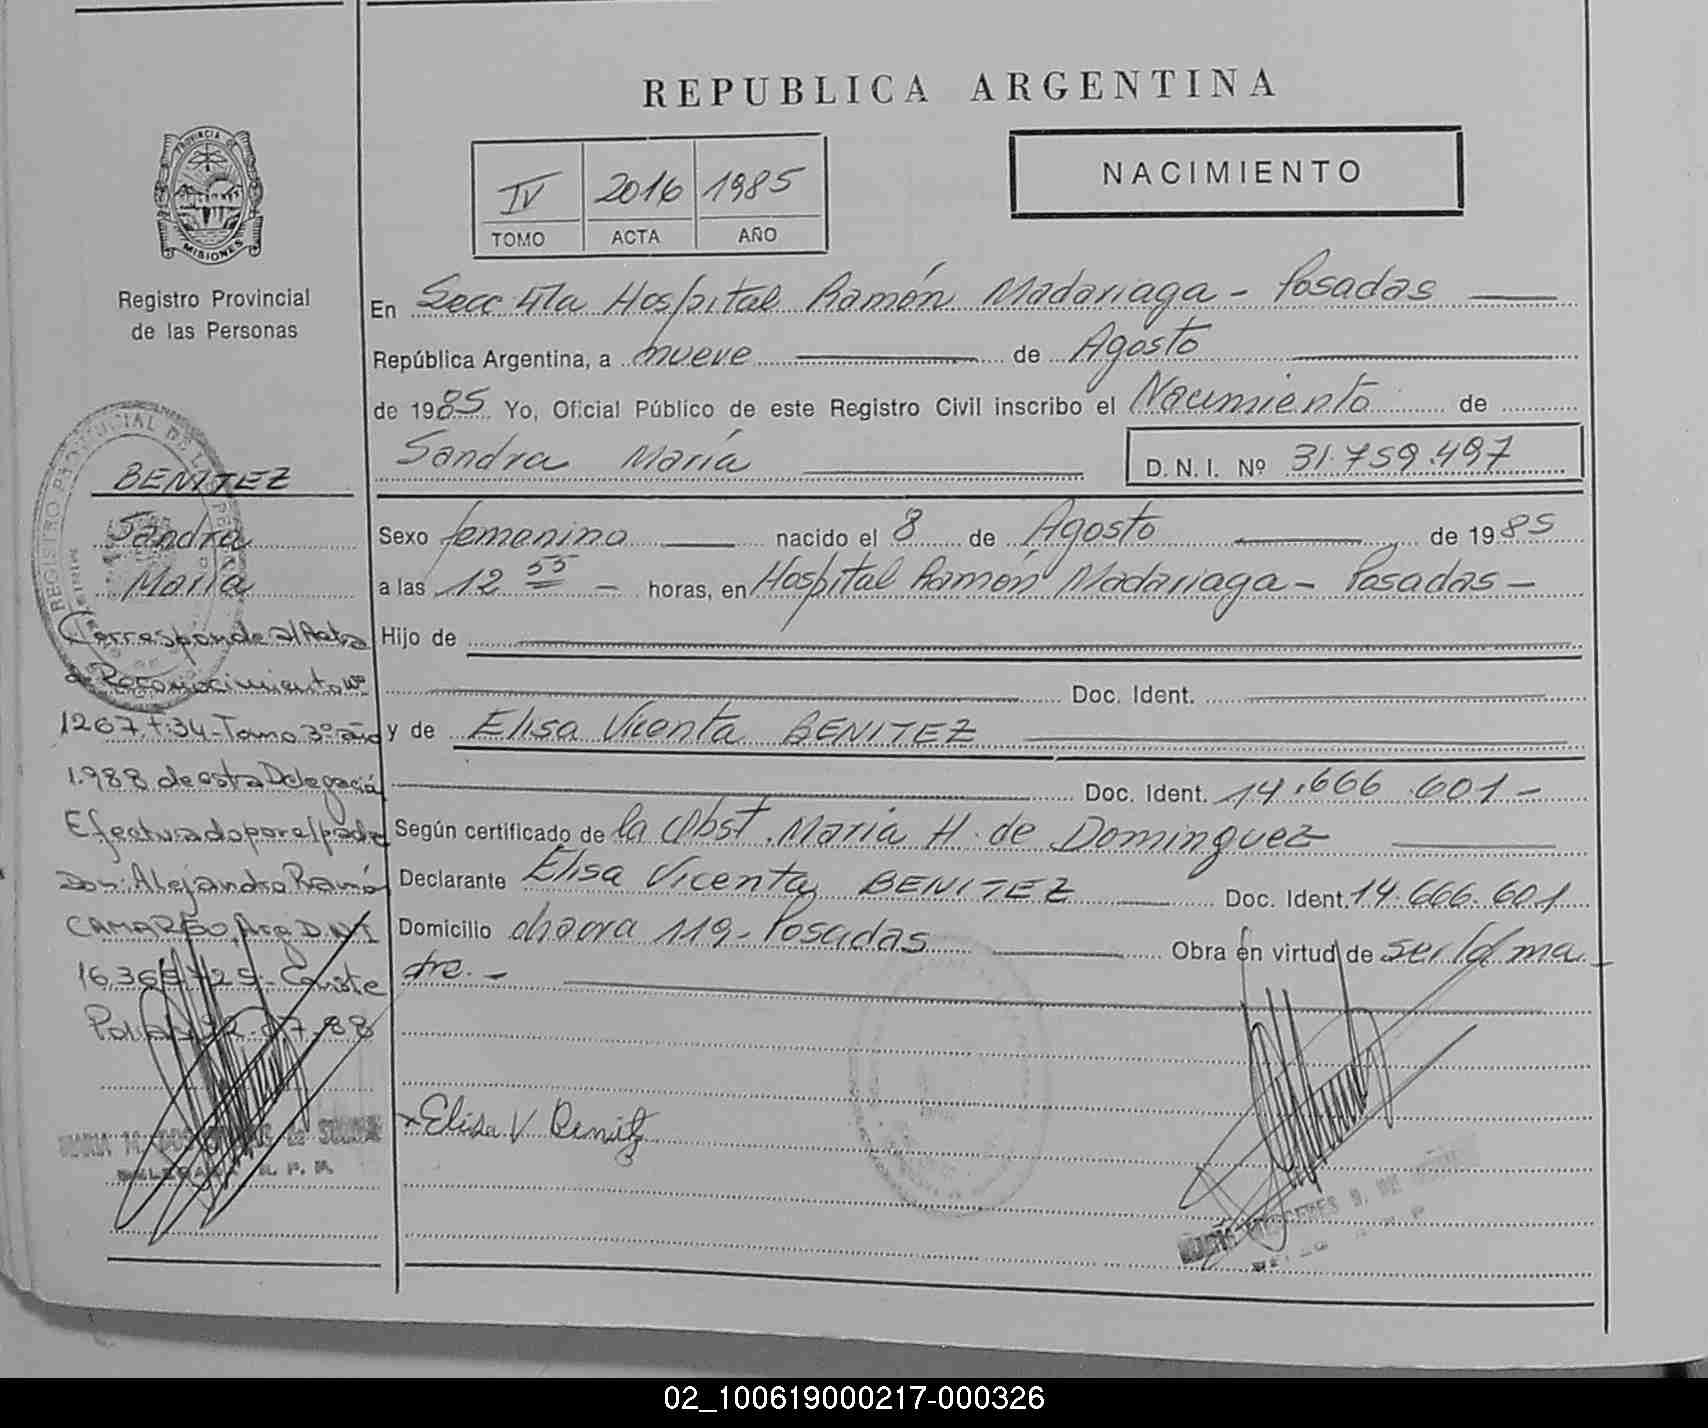 REPUBLICA ARGENTINA
PROVINCIA DE
MISIONES
Registro Provincial
de las Personas
IV 2016 1985
TOMO ACTA AÑO
NACIMIENTO
En Secc 4ta Hospital Ramón Madariaga - Posadas
República Argentina, a nueve de Agosto
de 1985 Yo, Oficial Público de este Registro Civil inscribo el Nacimiento de
Sandra María
D. N. I. Nº 31.759.497
Sexo femenino nacido el 8 de Agosto de 1985
a las 12 55 - horas, en Hospital Ramón Madariaga - Posadas -
Hijo de
Doc. Ident.
y de Elisa Vicenta BENITEZ
Doc. Ident. 14.666.601 -
Según certificado de la Obst. María H. de Dominguez
Declarante Elisa Vicenta BENITEZ Doc. Ident. 14.666.601
Domicilio chacra 119 - Posadas Obra en virtud de ser la ma
dre. -
Elisa V Benitez
BENITEZ
Sandra
María
Corresponde al Acta
de Reconocimiento Nº
1267 f:34 - Tomo 3º año
1.988 de esta Delegació
Efectuado por el padre
Don: Alejandro Ramó
CAMARGO, Arg D.N.I
16.365.725. Conste
02_100619000217-000326